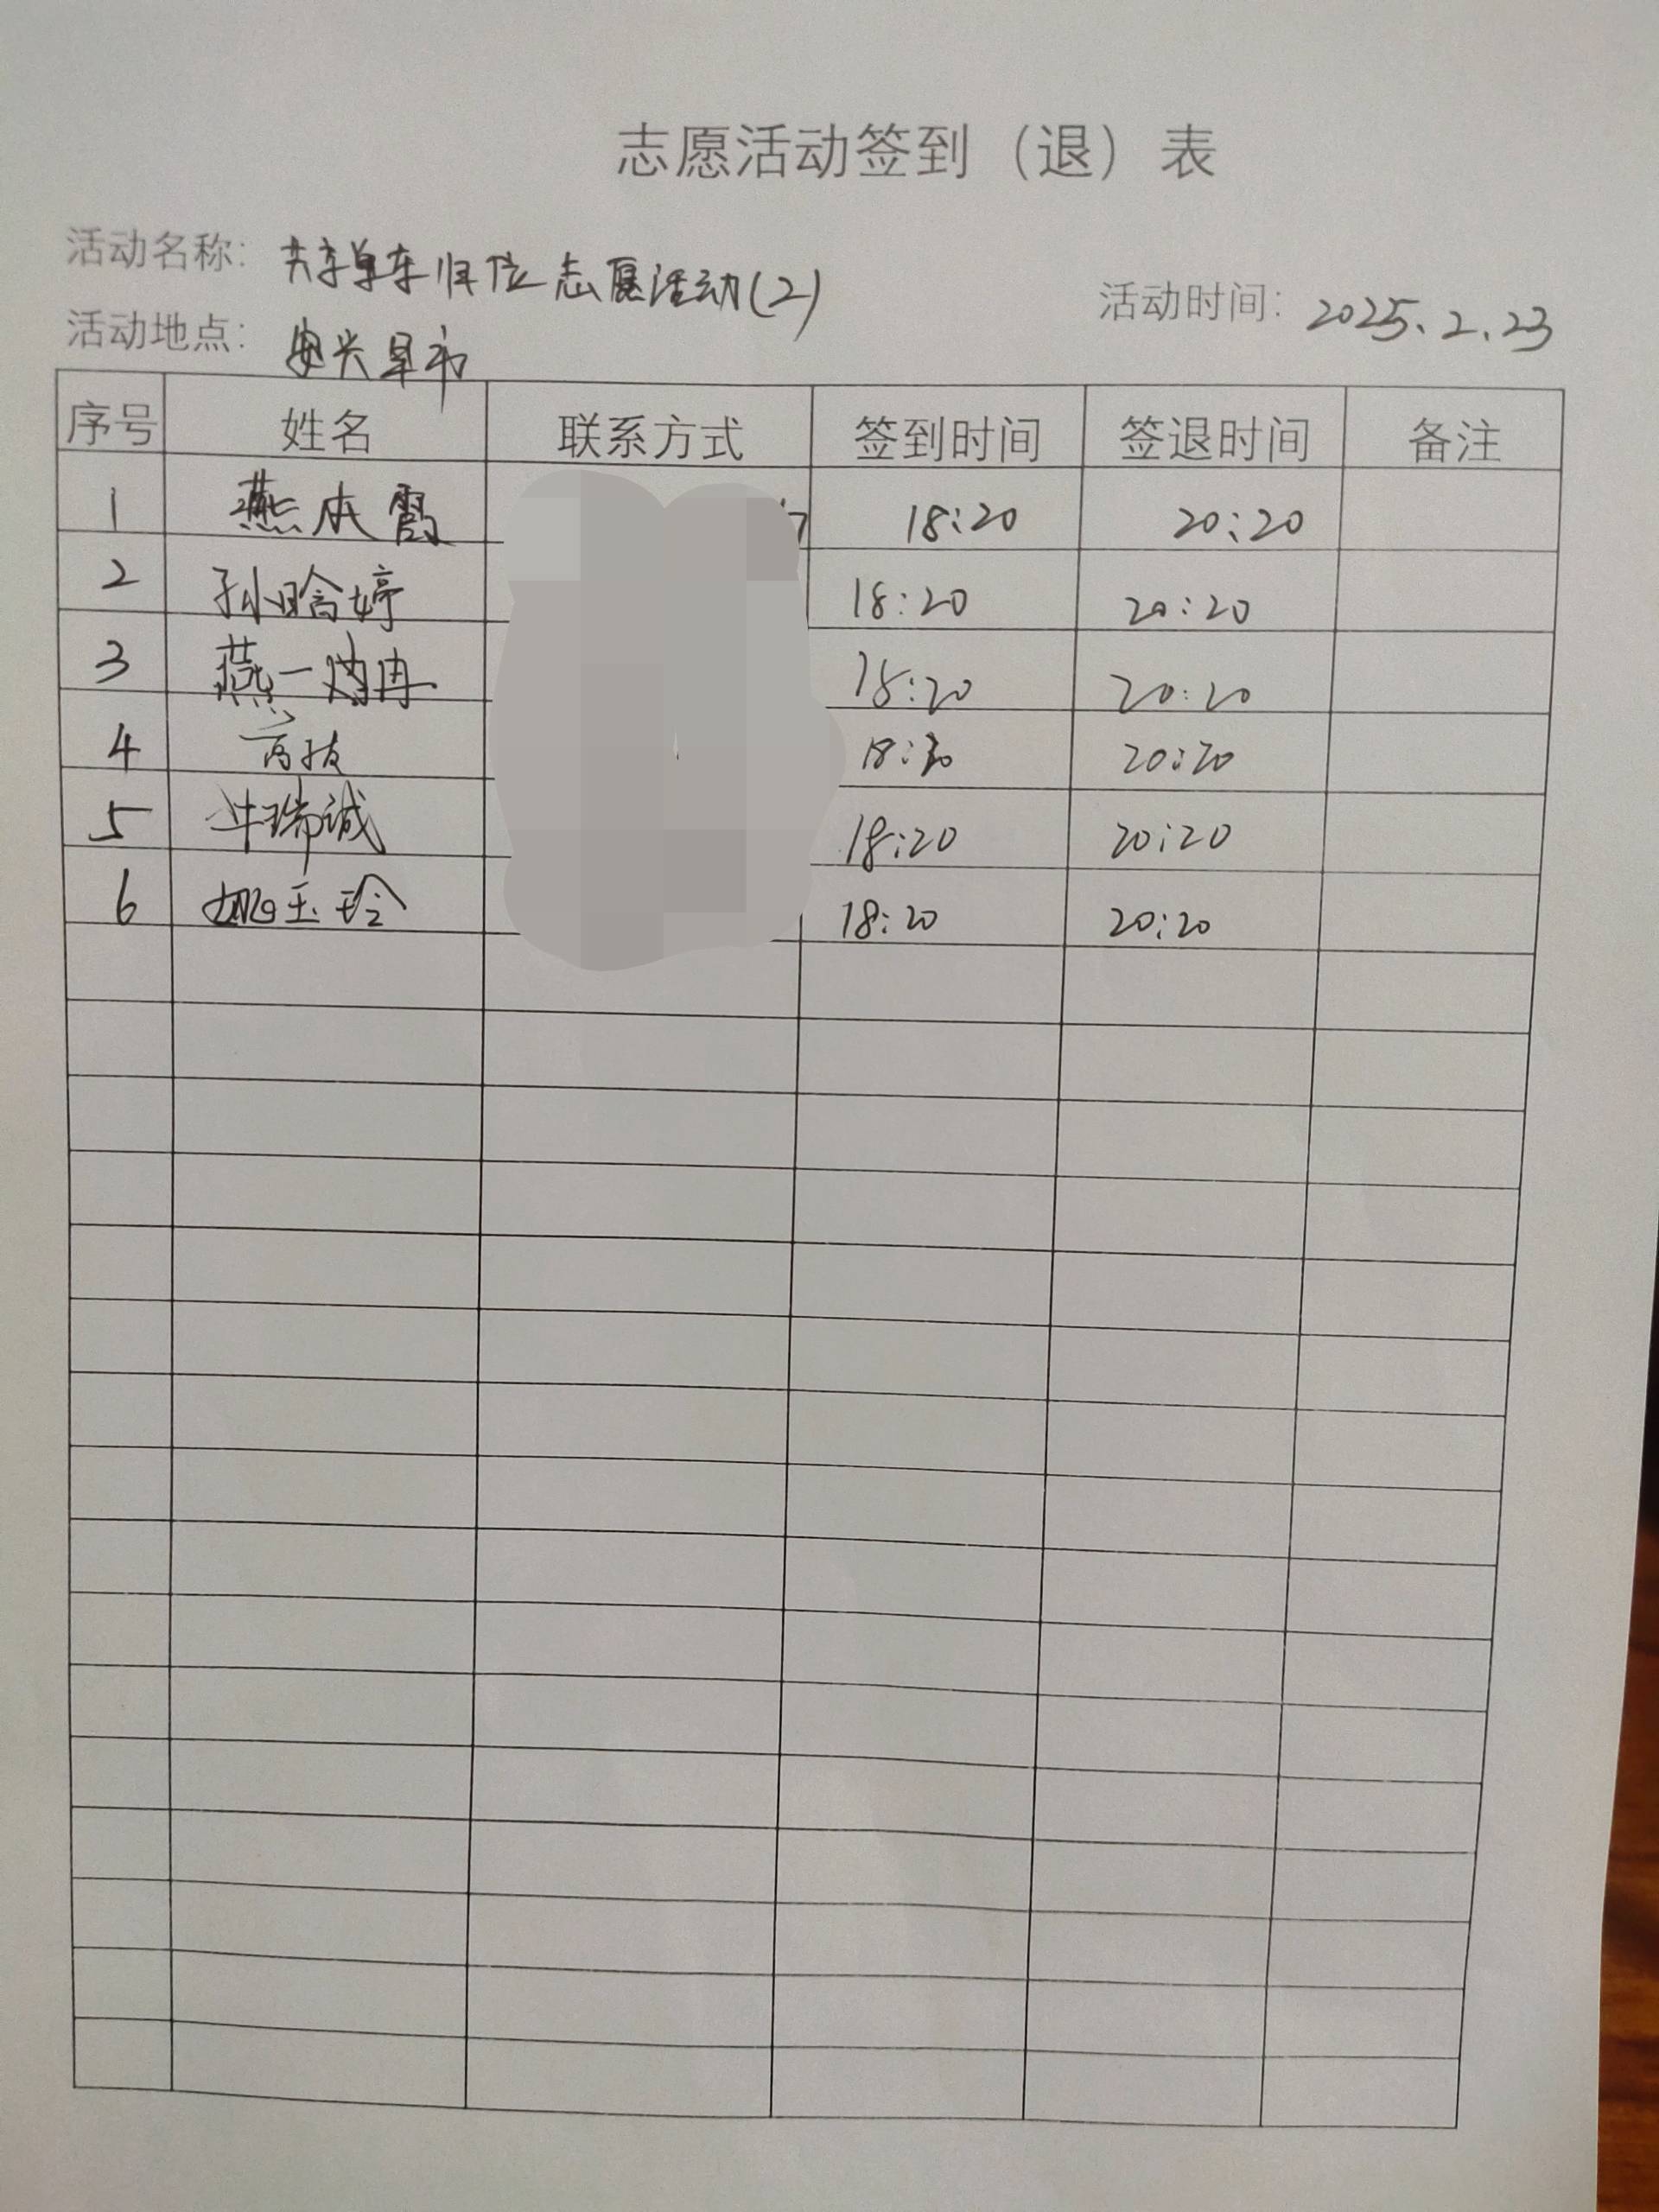 志愿活动签到（退）表
活动名称： 共享单车归位志愿活动(2)
活动时间： 2025.2.23
活动地点： 安兴早市
序号 姓名 联系方式 签到时间 签退时间 备注
1 燕本霞 18:20 20:20
2 孙晗婷 18:20 20:20
3 燕一冉 18:20 20:20
4 高 18:20 20:20
5 牛瑞诚 18:20 20:20
6 玉玲 18:20 20:20